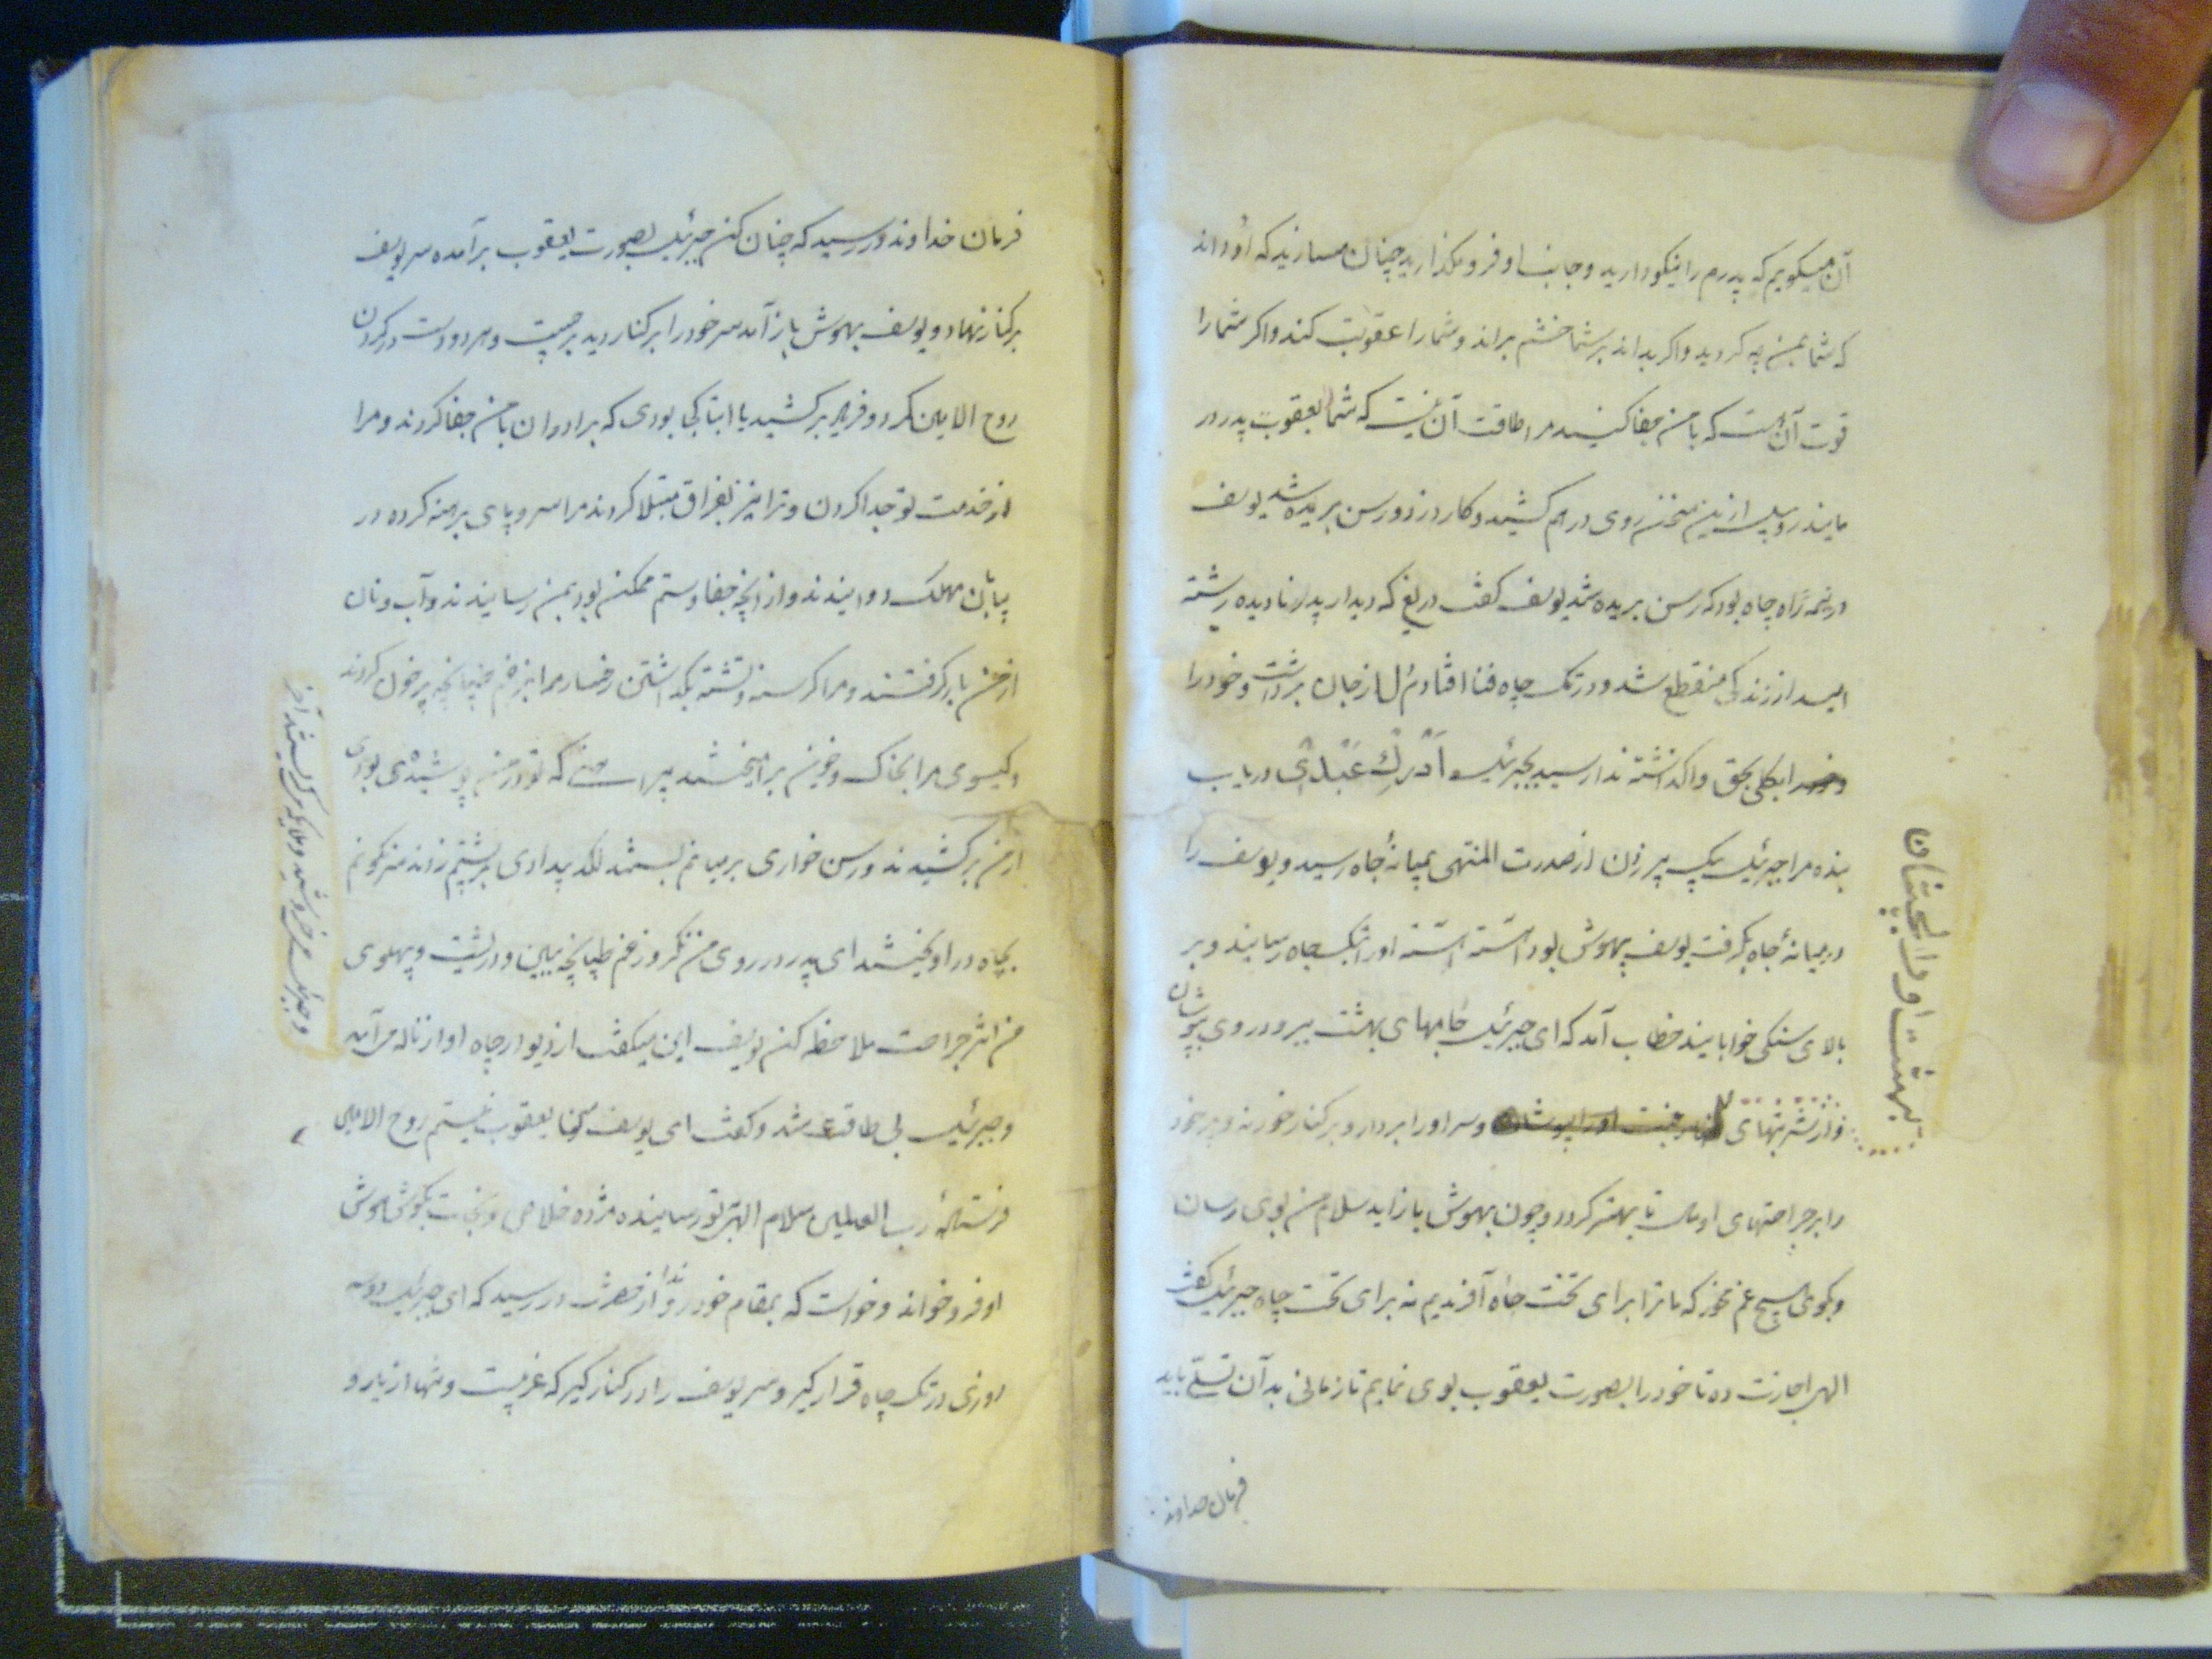 آن میکویم که پدرم را نیکو دارید و جانب او فرو مگذارید چنان مسازید که او داند
که شما بمن چه کردید و اکر بداند بر شما خشم براند و شما را عقوبت کند و اکر شما را
قوت آن هست که با من جفا کنید مرا طاقت آن نیست که شما بعقوبت پدر در
مانید روبیل ازین سخن روی درهم کشید و کارد زد و رسن بریده شد یوسف
در نیمه راه چاه بود که رسن بریده شد یوسف کفت دریغ که دیدار پدر نادیده رشتهٔ
امید از زندکی منقطع شد و در تک چاه فنا افتادم دل از جان برداشت و خود را
بکلی بحق واکذاشته ندا رسید بجبرئیل اَدْرِكْ عَبْدِي دریاب
بنده مرا جبرئیل بیک پر زدن از صدرت المنتهی بمیانهٔ چاه رسید و یوسف را
در میانهٔ چاه بکرفت یوسف بیهوش بود آهسته آهسته او را بتک چاه رسانید و بر
بالای سنکی خوابانید خطاب آمد که ای جبرئیل جامهای بهشت ببر و در وی بپوشان
و از شربتهای جنت او را بپوشان و سر او را بردار و بر کنار خود نه و پر خود
بهشت او را بچشان
را بر جراحتهای او مال تا بهتر کردد و چون بهوش باز آید سلام من بوی رسان
و بکوی هیچ غم مخور که ما ترا برای تخت جاه آفریدیم نه برای تخت چاه جبرئیل کفت
الهی اجازت ده تا خود را بصورت یعقوب بوی نمایم تا زمانی بدان تسلی یابد
فرمان خداوند
فرمان خداوند در رسید که چنان کن جبرئیل بصورت یعقوب برآمده سر یوسف
بر کنار نهاد و یوسف بهوش باز آمد سر خود را بر کنار دید برجست و هر دو دست در کردن
روح الامین کرد و فریاد برکشید یا ابتا کجا بودی که برادران با من جفا کردند و مرا
از خدمت تو جدا کردن و ترا نیز بفراق مبتلا کردند مرا سر و پای برهنه کرده در
بیابان مهلک دوانیدند و از آنچه جفا و ستم ممکن بود بمن رسانیدند و آب و نان
از من باز کرفتند و مرا کرسنه و تشنه بکذاشتن رخسار مرا بزخم طپانچه پر خون کردند
و کیسوی مرا بخاک و خون برآمیختند پیراهنی که تو در من پوشیدهٔ بودی
از من برکشیدند و رسن خواری بر میانم بستند لکد بیدادی بر پشتم زدند سرنکونم
بچاه در آویختند ای پدر در روی من نکر و زخم طپانچه ببین و در پشت و پهلوی
من اثر جراحت ملاحظه کن یوسف این میکفت از دیوار چاه آواز ناله می آمد
و جبرئیل بی طاقت شد و کفت ای یوسف من یعقوب نیستم روح الامین
فرستادهٔ رب العالمین سلام الهی بتو رسانیده مژده خلاصی و نجات بکوش هوش
او فرو خواند و خواست که بمقام خود رود ندا از حضرت در رسید که ای جبرئیل دو سه
روزی در تک چاه قرار کیر و سر یوسف را در کنار کیر که غریبست و تنها از یار و